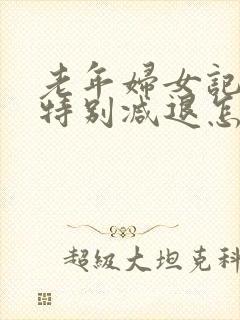 老年婦女記
特别减退怎
超級大坦克科